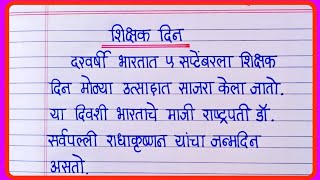 शिक्षक दिन
दरवर्षी भारतात ५ सप्टेंबरला शिक्षक
दिन मोठ्या उत्साहात साजरा केला जातो.
या दिवशी भारताचे माजी राष्ट्रपती डॉ.
सर्वपल्ली राधाकृष्णन यांचा जन्मदिन
असतो.